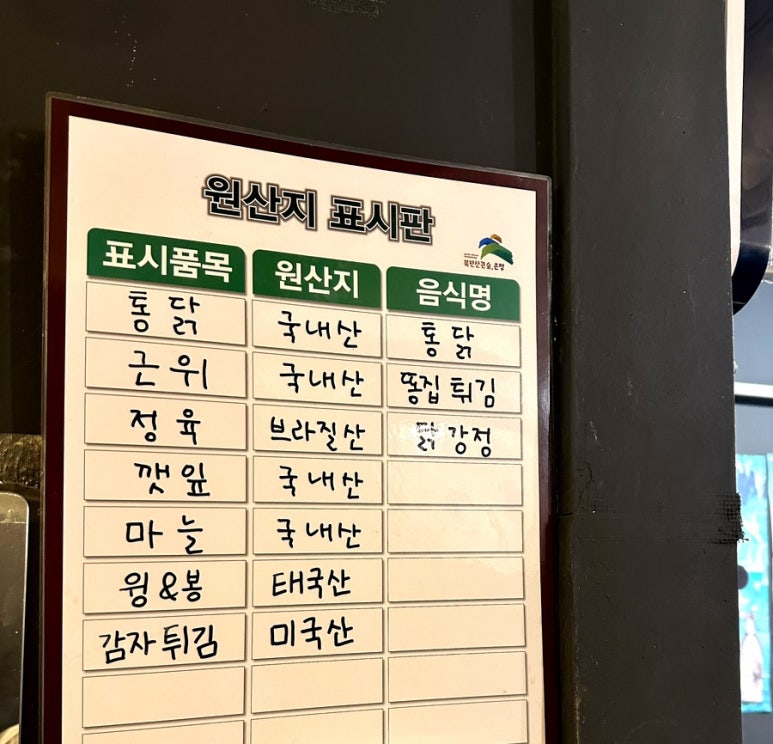 원산지 표시판
북한산큰숲,은평
표시품목 원산지 음식명
통닭 국내산 통닭
근위 국내산 똥집튀김
정육 브라질산 닭강정
깻잎 국내산
마늘 국내산
윙&봉 태국산
감자튀김 미국산